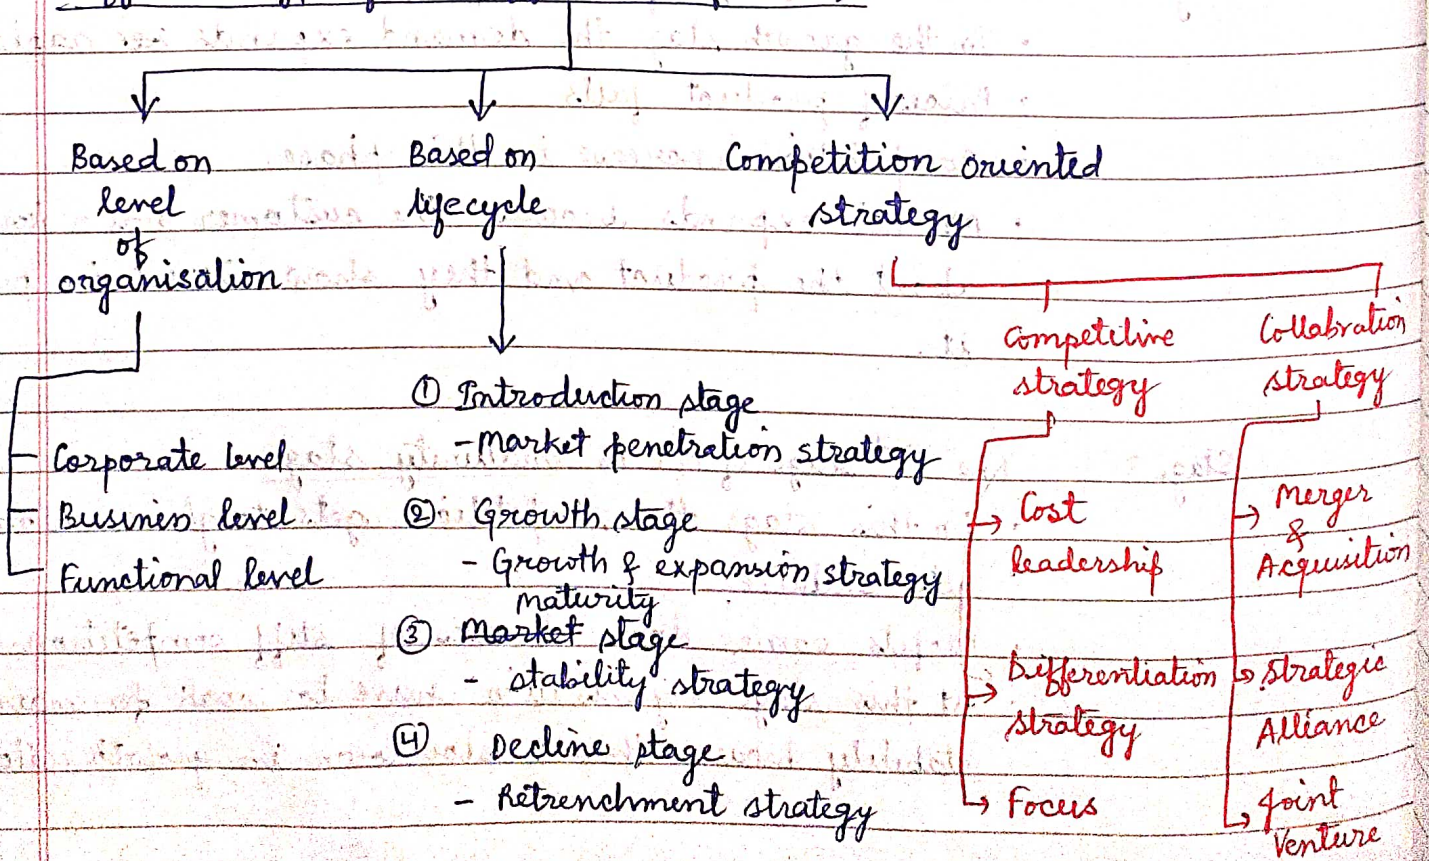 Based on
level
of
organisation
Corporate level
Business level
Functional level
Based on
lifecycle
① Introduction stage
- Market penetration strategy
② Growth stage
- Growth & expansion strategy
maturity
③ Market stage
- stability strategy
④ Decline stage
- Retrenchment strategy
Competition oriented
strategy
Competitive
strategy
Cost
leadership
Differentiation
strategy
Focus
Collabration
strategy
Merger
&
Acquisition
Strategic
Alliance
Joint
Venture